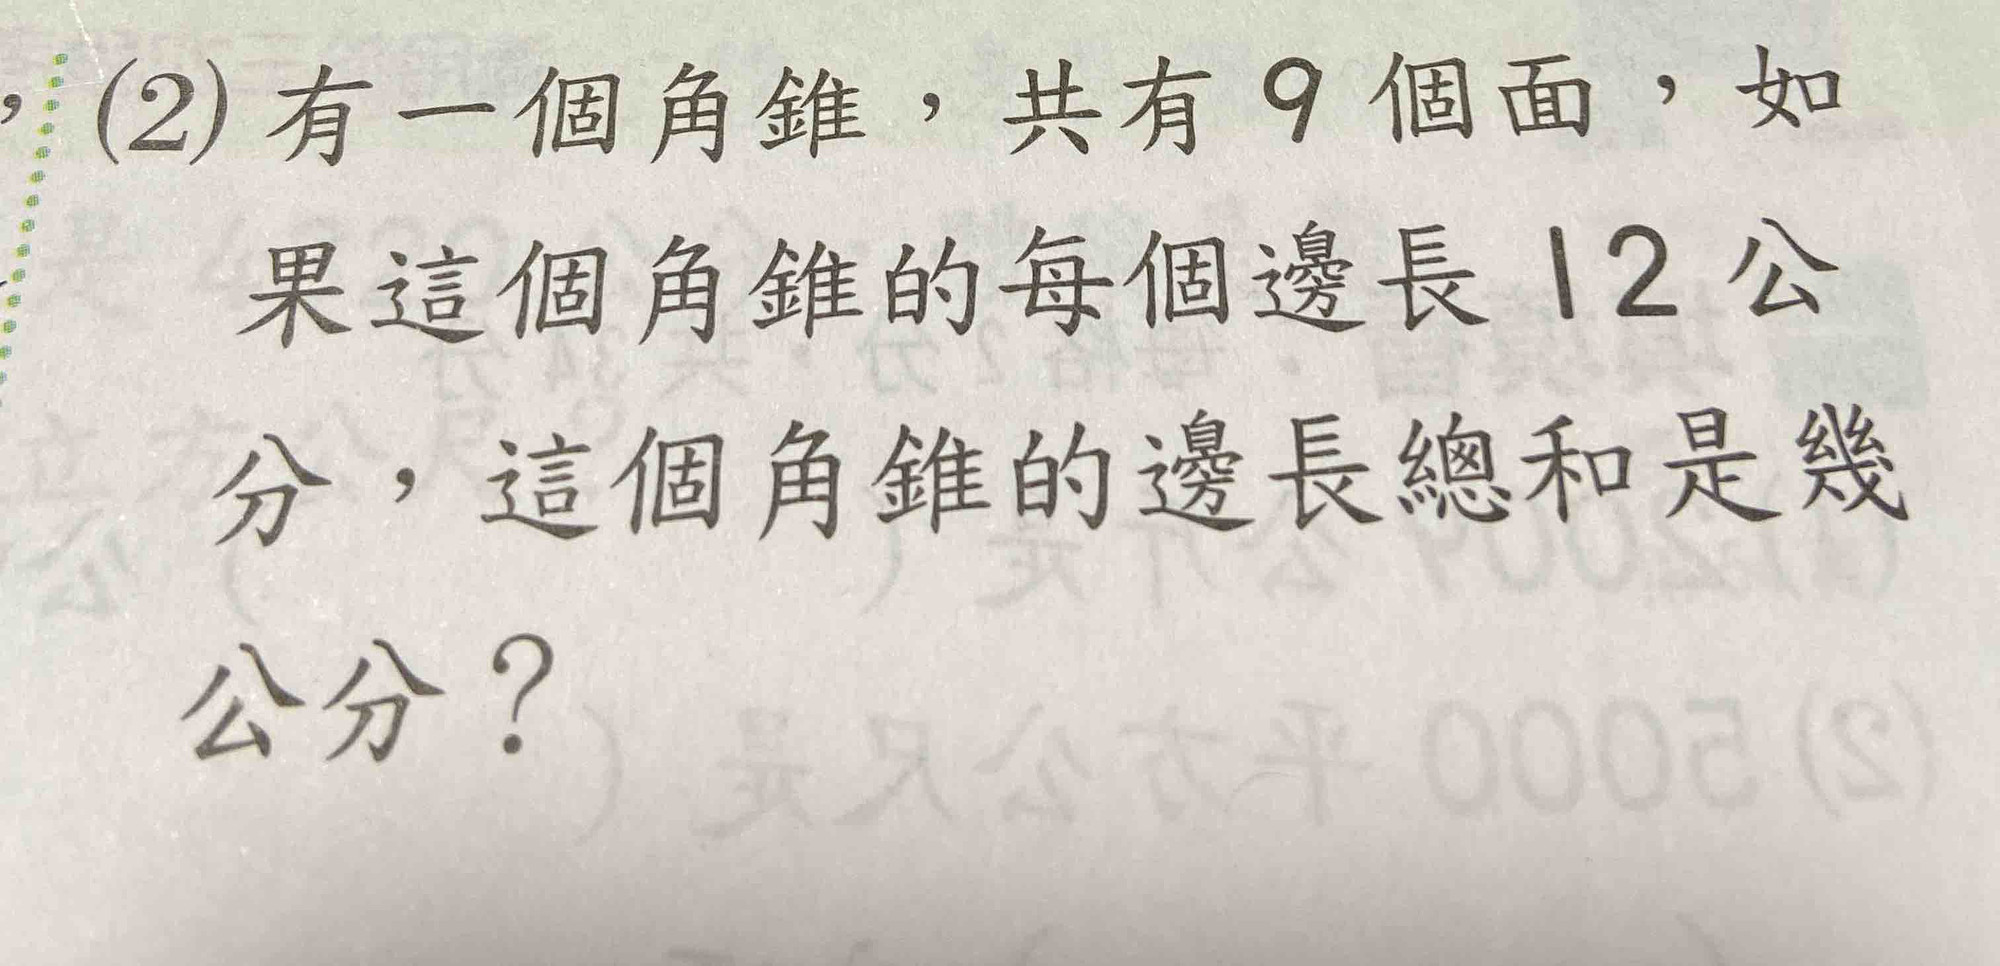 (2) 有一個角錐，共有 9 個面，如
果這個角錐的每個邊長 12 公
分，這個角錐的邊長總和是幾
公分？